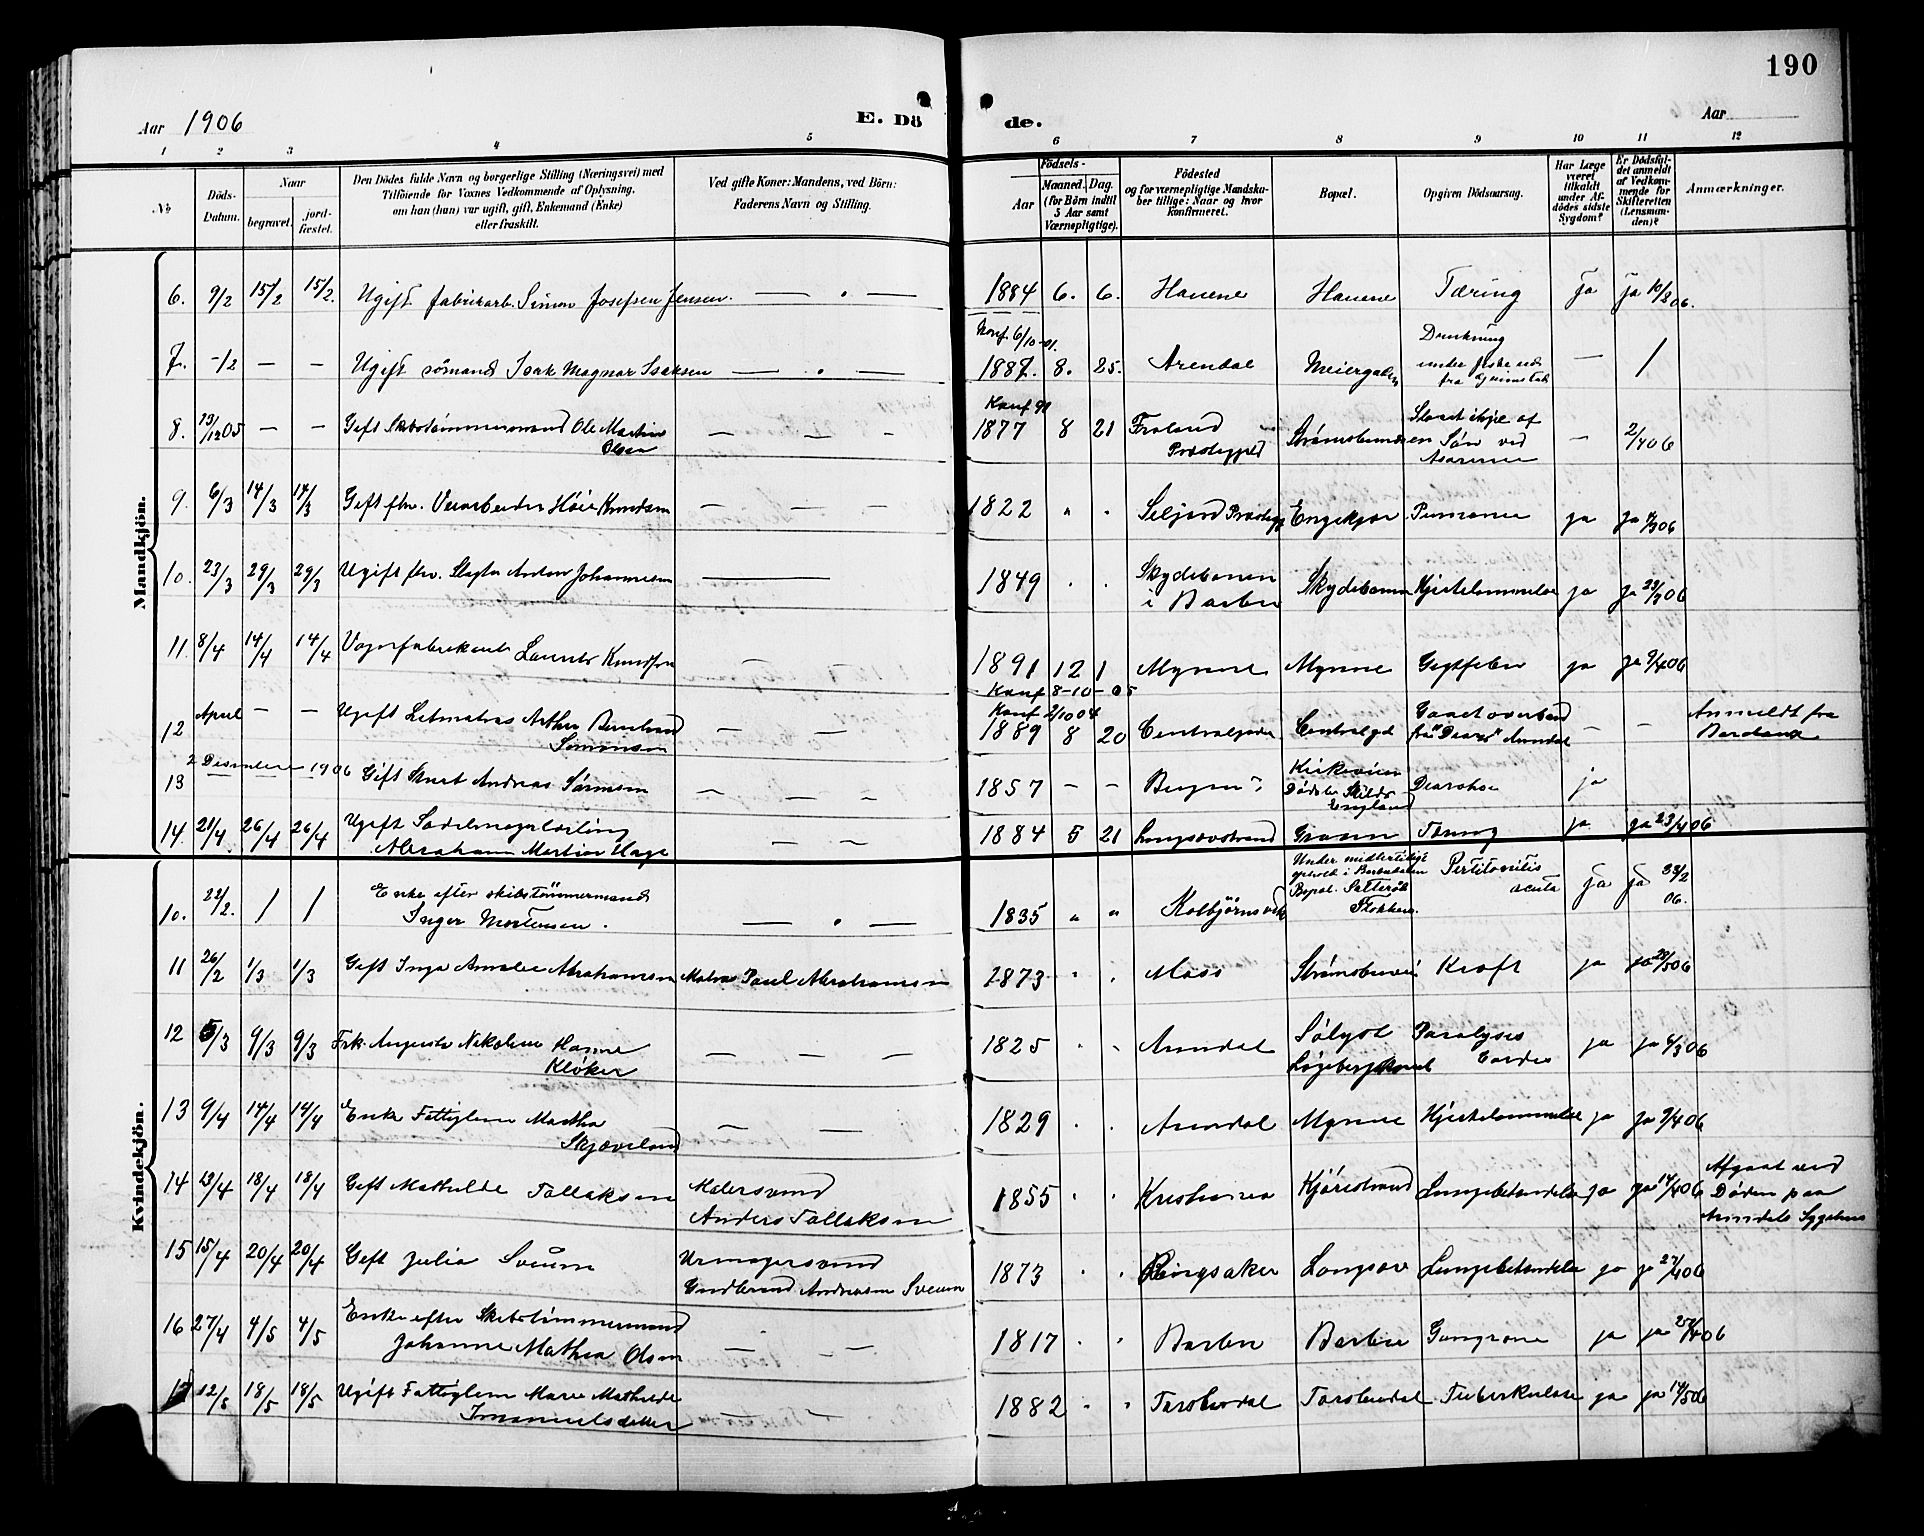 190
Aar 1906
E. Dö de.
Aar
1 2 3 4 5 6 7 8 9 10 11 12
№
Döds-Datum.
Naar
begravet.
jord-fæstet.
Den Dödes fulde Navn og borgerlige Stilling (Næringsvei) med
Tilföiende for Voxnes Vedkommende af Oplysning,
om han (hun) var ugift, gift, Enkemand (Enke)
eller fraskilt.
Ved gifte Koner: Mandens, ved Börn:
Faderens Navn og Stilling.
Födsels-
Aar
Maaned. Dag.
(for Börn indtil
5 Aar samt
Værnepligtige).
Födested
og for værnepligtige Mandska-
ber tillige: Naar og hvor
konfirmeret.
Bopæl.
Opgiven Dödsaarsag.
Har Læge
været
tilkaldt
under Af-
dödes sidste
Sygdom?
Er Dödsfal-
det anmeldt
af Vedkom-
mende for
Skifteretten
(Lensman-
den)?
Anmærkninger.
Mandkjön.
6. 9/2 15/2 15/2. Ugift fabrikarb. Simon Josefsen Jensen. — . — 1884 6. 6. Hauene Hauene Tæring ja ja 10/2 06.
Konf. 6/10-01.
7. -/2 — — Ugift sömand Isak Magnar Isaksen — . — 1887. 8. 25. Arendal Meiergaden Drukning
under fiske ude
fra Grimstad — /
Konf 91
8. 23/12 05 — — Gift Skibstömmermand Ole Martin
Olsen — — — 1877 8 21 Froland
Præstegjeld Strömsbuneen
Sön ved — 2/4 06
9. 6/3 14/3 14/3 Gift fhv. Veiarbeider Höie Knudsen — — — 1822 " . Seljord Præstegj Engekjær ja ja
10. 23/3 29/3 29/3 Ugift fhv. Slagter Anton Johannesen — 1849 . . Skydebanen
i Barbu Skydebanen Hjertelammelse ja ja 23/3 06
11. 8/4 14/4 14/4 Vognfabrikant Laurits Knudsen — — 1891 12 1 Myrene Myrene Gigtfeber ja ja 9/4 06
Konf 8-10-05
Konf 2/10 04
12 April — — Ugift Letmatros Arthur Berntsand
Simonsen — — 1889 8 20 Centralgaden Centralgd Gaaet overbord
fra "Deo" Arendal — — Anmeldt fra
13 2 Desember 1906 Gift Andreas Sörensen — — — 1857 — — Bergen Kirkeveien
Dödste
England Diarohe ja
14. 21/4. 26/4 26/4 Ugift Sadelmagerlærling
Abraham Martin Hage — — 1884 5 21 Langsævstrand Graaen Tæring ja ja 23/4 06
Kvindekjön.
10. 22/2. / / Enke efter skibstömmermand
Inger Mortensen. — . — 1835 " " Kolbjörnsvik Under midlertidigt
ophold i Barbudalen
Bopæl. Sætteröd
Flokken. Pertitonitis
acuta ja ja 23/2
06.
11 26/2 1/3 1/3 Gift Inga Amalie Abrahamsen Matros Paul Abrahamsen 1873 . . Moss Strömsbuveien Kræft ja ja
12 5/3 9/3 9/3 Frk. Augusta Nikoline Hanne
Klöker — — — 1825 . . Arendal Sölyst
Paralyses
Cordis ja ja 6/3 06
13 9/4 14/4 14/4 Enke Fattiglem Martha
Skjæveland — — 1829 . . Arendal Myrene Hjertelammelse ja ja 9/4 06
14 13/4 18/4 18/4 Gift Mathilde Tallaksen Malersvend
Anders Tallaksen 1855 . . Kristiania Kjörestrand Lungebetændelse ja ja 14/4 06 Afgaat ved
Döden paa
Arendals Sygehus
15 15/4 20/4 20/4 Gift Julia Sveum Urmagersvend
Gudbrand Andreasen Sveum 1873 . . Ringsaker Langsæv Lungebetændelse ja ja 27/4 06
16 27/4 4/5 4/5 Enke efter Skibstömmermand
Johanne Mathea Olsen — — 1817 . . Barbu Barbu Gangræne ja ja
17 12/5 18/5 18/5 Ugift Fattiglem Marie Mathilde
Imanuelsdatter — — 1882 . . Torsbudal Torsbudal Tuberkulose ja ja 14/5 06